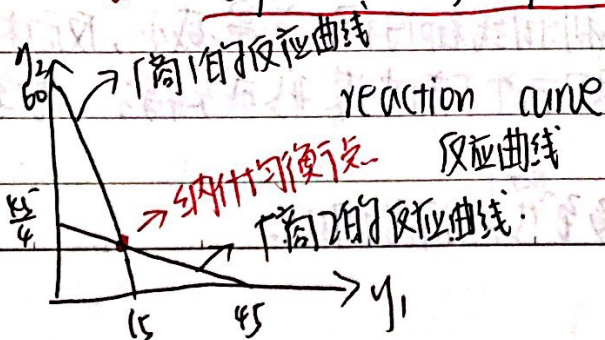 y₂
60
厂商1的反应曲线
reaction curve
反应曲线
纳什均衡点
45/4
厂商2的反应曲线.
15
45
y₁